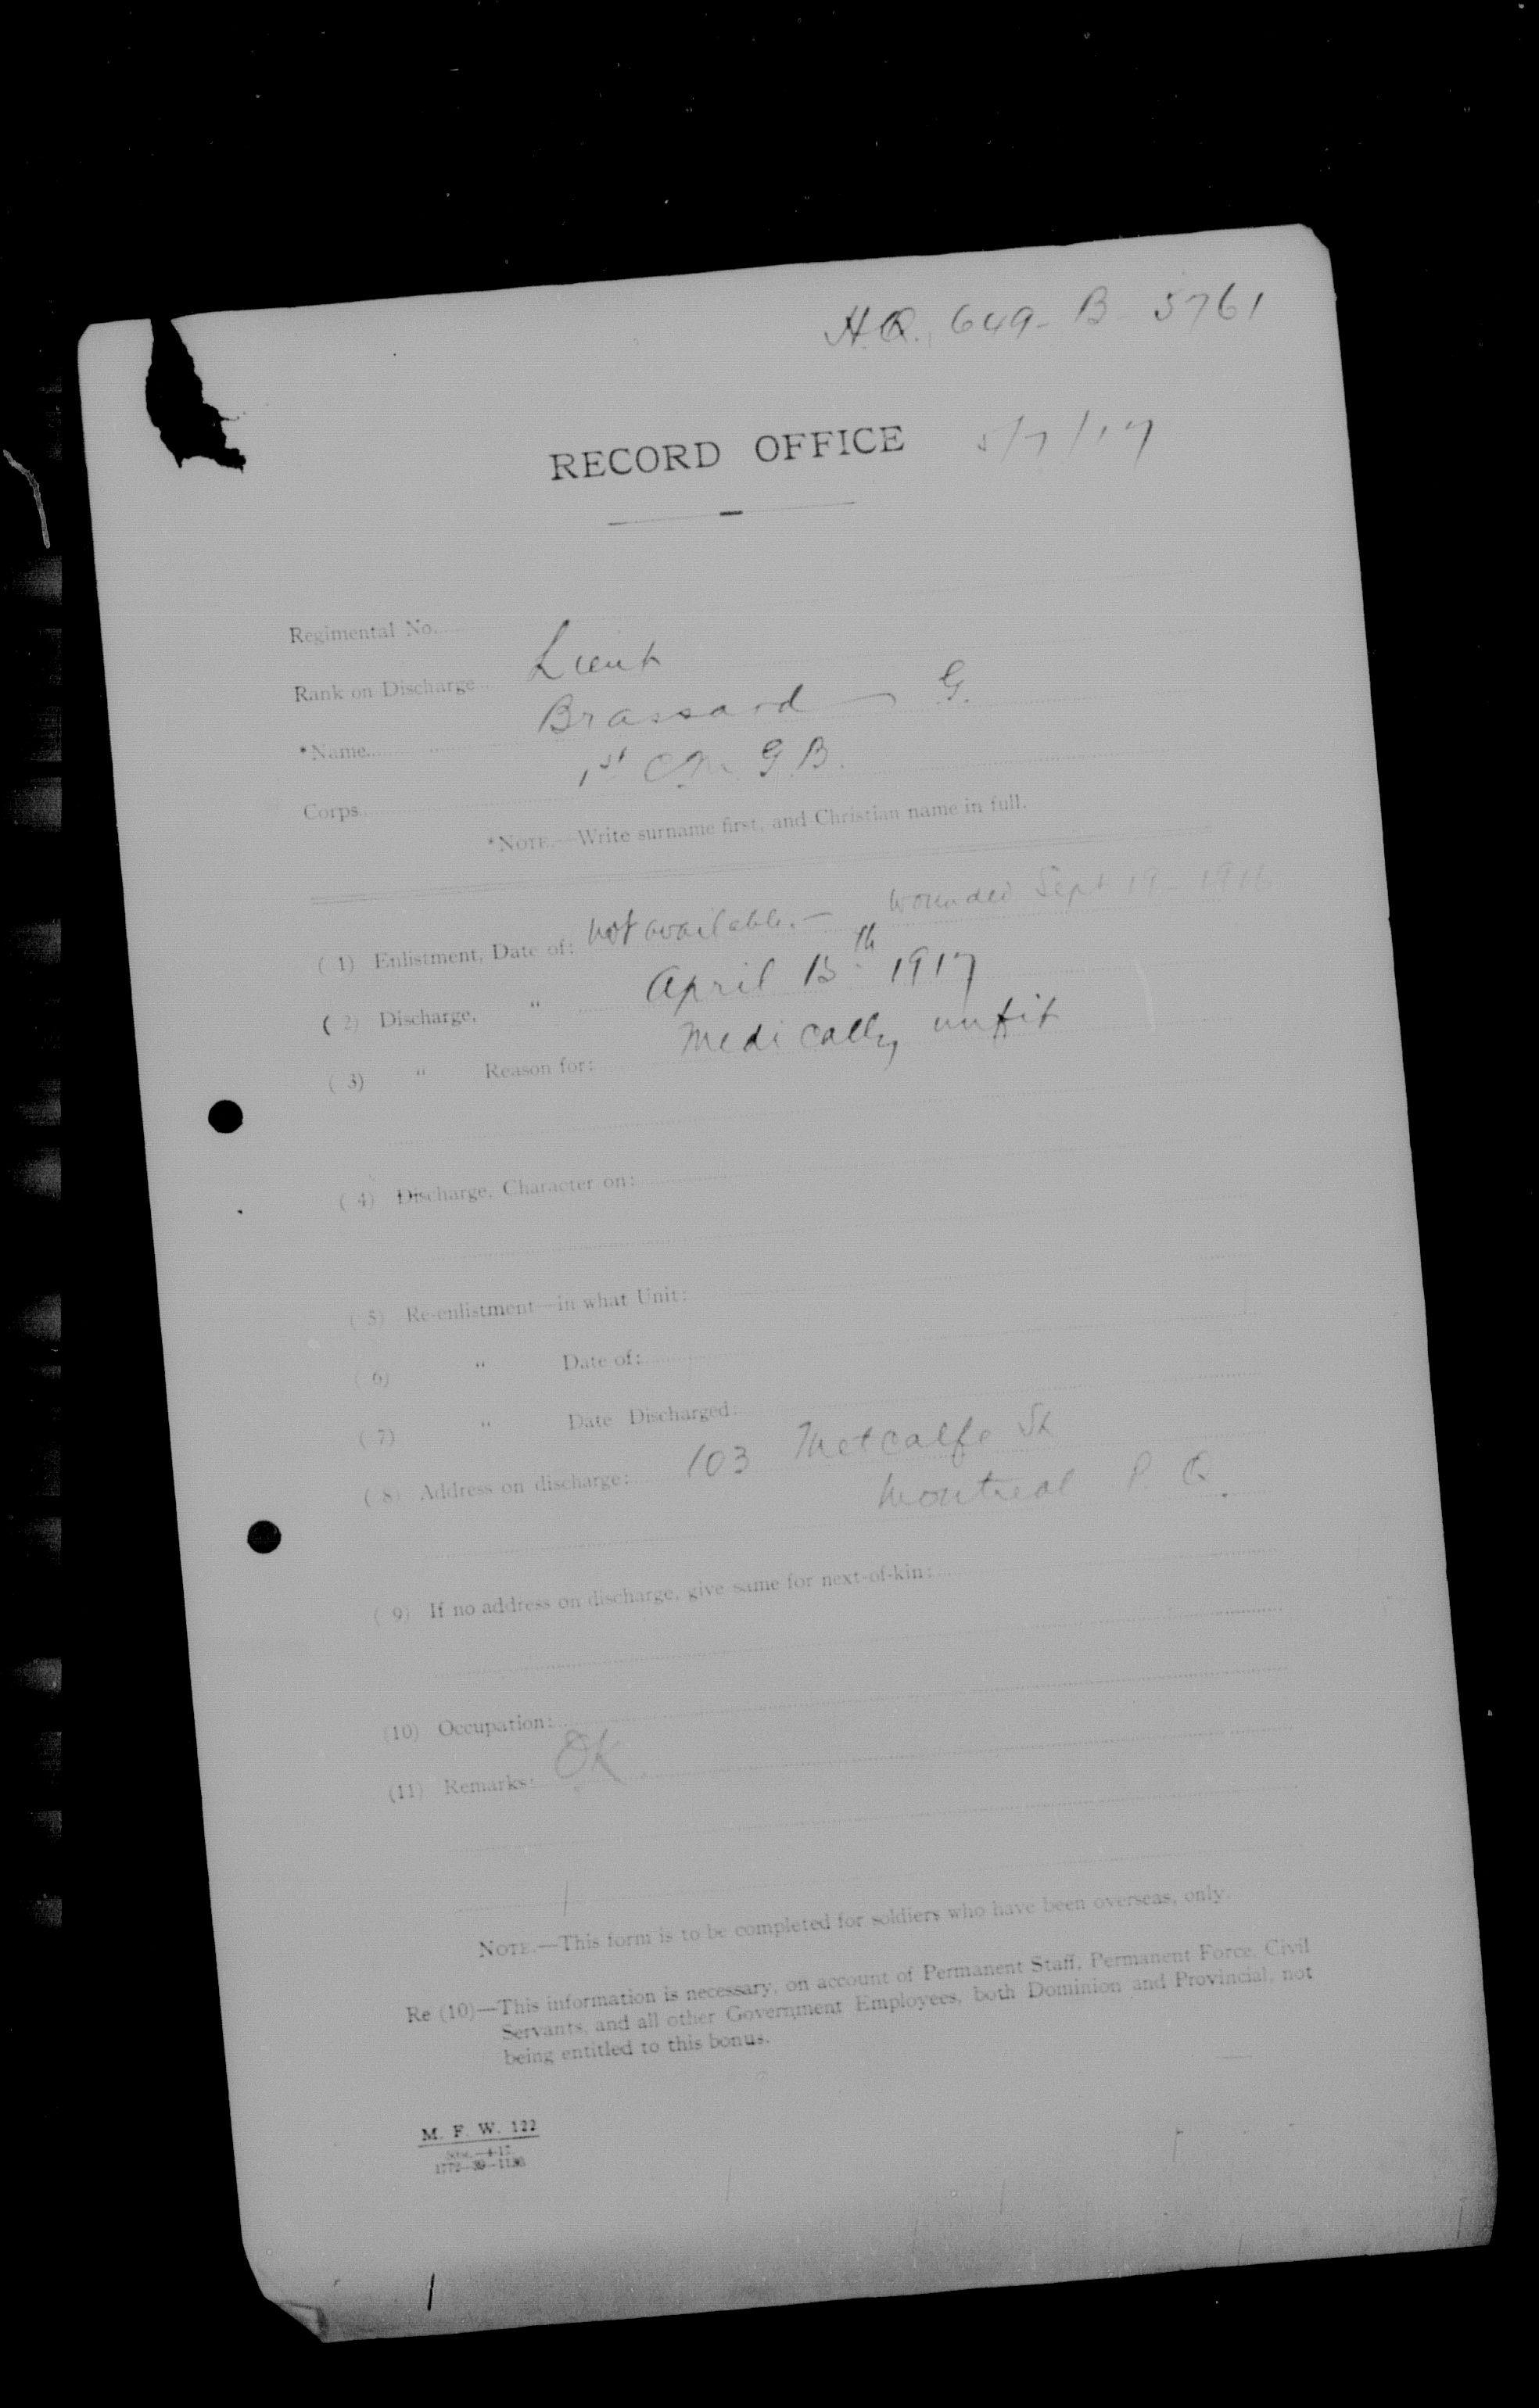 H.Q. 649- B- 5761
RECORD OFFICE 5/7/17
Regimental No.
Rank on Discharge Lieut
*Name Brassard — G.
Corps 1st C.M.G.B.
*NOTE.—Write surname first, and Christian name in full.
( 1) Enlistment, Date of: not available. — wounded Sept 19 - 1916
( 2) Discharge, " April 15th 1917
( 3) " Reason for: Medically unfit
( 4) Discharge, Character on:
( 5) Re-enlistment—in what Unit:
( 6) " Date of:
( 7) " Date Discharged:
( 8) Address on discharge: 103 Metcalfe St
Montreal P. Q.
( 9) If no address on discharge, give same for next-of-kin:
(10) Occupation:
(11) Remarks: OK
NOTE.—This form is to be completed for soldiers who have been overseas, only.
Re (10)—This information is necessary, on account of Permanent Staff, Permanent Force, Civil
Servants, and all other Government Employees, both Dominion and Provincial, not
being entitled to this bonus.
M. F. W. 122